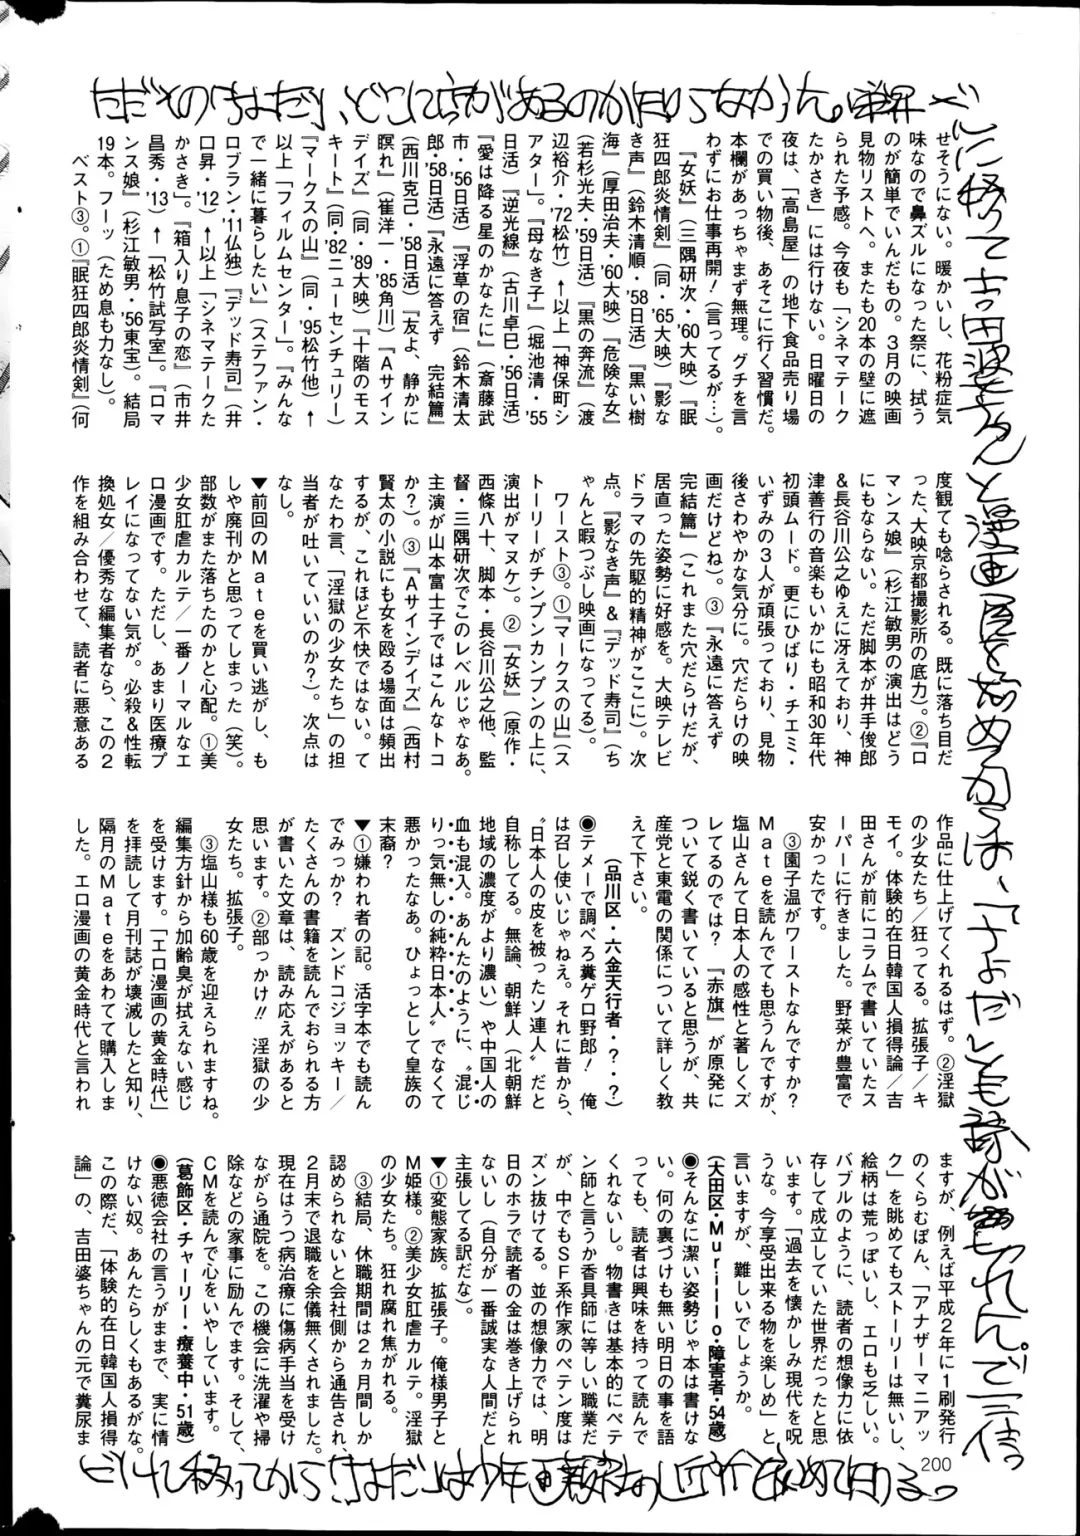 せそうにない。暖かいし、花粉症気
味なので鼻ズルになった祭に、拭う
のが簡単でいんだもの。3月の映画
見物リストへ。またも20本の壁に遮
られた予感。今夜も「シネマテーク
たかさき」には行けない。日曜日の
夜は、「高島屋」の地下食品売り場
での買い物後、あそこに行く習慣だ。
本欄があっちゃまず無理。グチを言
わずにお仕事再開!(言ってるが…)。
『女妖』(三隅研次・'60大映)『眠
狂四郎炎情剣』(同・'65大映)『影な
き声』(鈴木清順・'58日活)『黒い樹
海』(厚田治夫・'60大映)『危険な女』
(若杉光夫・'59日活)『黒の奔流』(渡
辺裕介・'72松竹)↑以上「神保町シ
アター」。『母なき子』(堀池清・'55
日活)『逆光線』(古川卓巳・'56日活)
『愛は降る星のかなたに』(斎藤武
市・'56日活)『浮草の宿』(鈴木清太
郎・'58日活)『永遠に答えず 完結篇』
(西川克己・'58日活)『友よ、静かに
瞑れ』(崔洋一・'85角川)『Aサイン
デイズ』(同・'89大映)『十階のモス
キート』(同・'82ニューセンチュリー)
『マークスの山』(同・'95松竹他)↑
以上「フィルムセンター」。『みんな
で一緒に暮らしたい』(ステファン・
ロブラン・'11仏独)『デッド寿司』(井
口昇・'12)↑以上「シネマテークた
かさき」。『箱入り息子の恋』(市井
昌秀・'13)↑「松竹試写室」。『ロマ
ンス娘』(杉江敏男・'56東宝)。結局
19本。フーッ(ため息も力なし)。
ベスト③。①『眠狂四郎炎情剣』(何
度観ても唸らされる。既に落ち目だ
った、大映京都撮影所の底力)。②『ロ
マンス娘』(杉江敏男の演出はどう
にもならない。ただ脚本が井手俊郎
＆長谷川公之ゆえに冴えており、神
津善行の音楽もいかにも昭和30年代
初頭ムード。更にひばり・チエミ・
いずみの3人が頑張っており、見物
後さわやかな気分に。穴だらけの映
画だけどね)。③『永遠に答えず
完結篇』(これまた穴だらけだが、
居直った姿勢に好感を。大映テレビ
ドラマの先駆的精神がここに)。次
点。『影なき声』＆『デッド寿司』(ち
ゃんと暇つぶし映画になってる)。
ワースト③。①『マークスの山』(ス
トーリーがチンプンカンプンの上に、
演出がマヌケ)。②『女妖』(原作・
西條八十、脚本・長谷川公之他、監
督・三隅研次でこのレベルじゃなあ。
主演が山本富士子ではこんなトコ
か?)。③『Aサインデイズ』(西村
賢太の小説にも女を殴る場面は頻出
するが、これほど不快ではない。て
なたわ言、「淫獄の少女たち」の担
当者が吐いていいのか?)。次点は
なし。
▼前回のMateを買い逃がし、も
しや廃刊かと思ってしまった(笑)。
部数がまた落ちたのかと心配。①美
少女肛虐カルテ/一番ノーマルなエ
ロ漫画です。ただし、あまり医療プ
レイになってない気が。必殺＆性転
換処女/優秀な編集者なら、この2
作を組み合わせて、読者に悪意ある
作品に仕上げてくれるはず。②淫獄
の少女たち/狂ってる。拡張子/キ
モイ。体験的在日韓国人損得論/吉
田さんが前にコラムで書いていたス
ーパーに行きました。野菜が豊富で
安かったです。
③園子温がワーストなんですか?
Mateを読んでても思うんですが、
塩山さんて日本人の感性と著しくズ
レてるのでは? 『赤旗』が原発に
ついて鋭く書いていると思うが、共
産党と東電の関係について詳しく教
えて下さい。
(品川区・六金天行者・?・?)
◉テメーで調べろ糞ゲロ野郎! 俺
は召し使いじゃねえ。それに昔から、
〝日本人の皮を被ったソ連人〟だと
自称してる。無論、朝鮮人(北朝鮮
地域の濃度がより濃い)や中国人の
血も混入。あんたのように、〝混じ
りっ気無しの純粋日本人〟でなくて
悪かったなあ。ひょっとして皇族の
末裔?
▼①嫌われ者の記。活字本でも読ん
でみっか? ズンドコジョッキー/
たくさんの書籍を読んでおられる方
が書いた文章は、読み応えがあると
思います。②部っかけ!! 淫獄の少
女たち。拡張子。
③塩山様も60歳を迎えられますね。
編集方針から加齢臭が拭えない感じ
を受けます。「エロ漫画の黄金時代」
を拝読して月刊誌が壊滅したと知り、
隔月のMateをあわてて購入しま
した。エロ漫画の黄金時代と言われ
ますが、例えば平成2年に1刷発行
のくらむぼん、「アナザーマニアッ
ク」を眺めてもストーリーは無いし、
絵柄は荒っぽいし、エロも乏しい。
バブルのように、読者の想像力に依
存して成立していた世界だったと思
います。「過去を懐かしみ現代を呪
うな。今享受出来る物を楽しめ」と
言いますが、難しいでしょうか。
(大田区・Murillo・障害者・54歳)
◉そんなに潔い姿勢じゃ本は書けな
い。何の裏づけも無い明日の事を語
っても、読者は興味を持って読んで
くれないし。物書きは基本的にペテ
ン師と言うか香具師に等しい職業だ
が、中でもSF系作家のペテン度は
ズン抜けてる。並の想像力では、明
日のホラで読者の金は巻き上げられ
ないし(自分が一番誠実な人間だと
主張してる訳だな)。
▼①変態家族。拡張子。俺様男子と
M姫様。②美少女肛虐カルテ。淫獄
の少女たち。狂れ腐れ焦がれる。
③結局、休職期間は2ヵ月間しか
認められないと会社側から通告され、
2月末で退職を余儀無くされました。
現在はうつ病治療に傷病手当を受け
ながら通院を。この機会に洗濯や掃
除などの家事に励んでます。そして、
CMを読んで心をいやしています。
(葛飾区・チャーリー・療養中・51歳)
◉悪徳会社の言うがままで、実に情
けない奴。あんたらしくもあるがな。
この際だ、「体験的在日韓国人損得
論」の、吉田婆ちゃんの元で糞尿ま
200